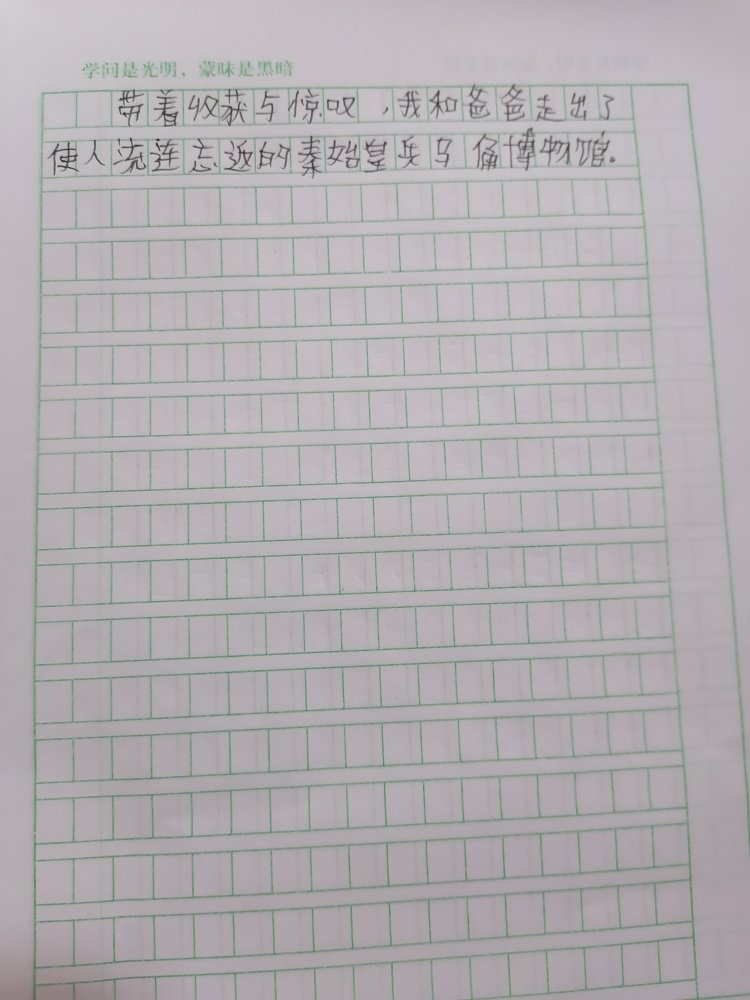 学问是光明，蒙昧是黑暗
带着收获与惊叹，我和爸爸走出了
使人流连忘返的秦始皇兵马俑博物馆.